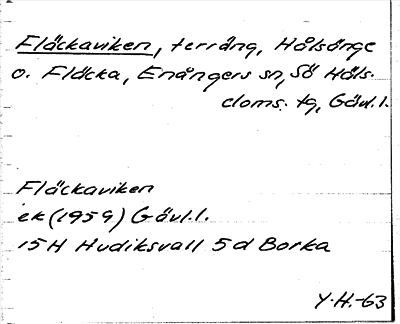 Fläckaviken, terräng, Hålsänge
o. Fläcka, Enångers sn, Sö Häls.
doms. tg, Gävl.l.
Fläckaviken
ek (1959) Gävl.l.
15H Hudiksvall 5d Borka
Y.H.-63